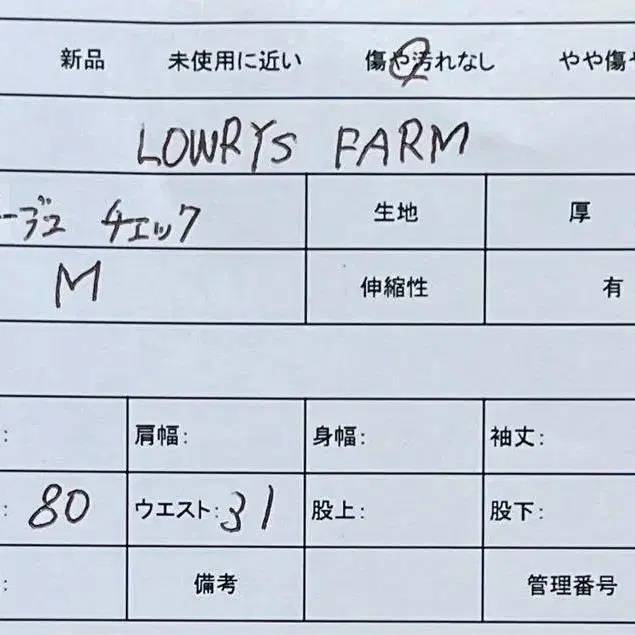 新品 未使用に近い 傷や汚れなし やや傷
LOWRYS FARM
ージュ チェック 生地 厚
M 伸縮性 有
: 肩幅: 身幅: 袖丈:
: 80 ウエスト: 31 股上: 股下:
: 備考 管理番号